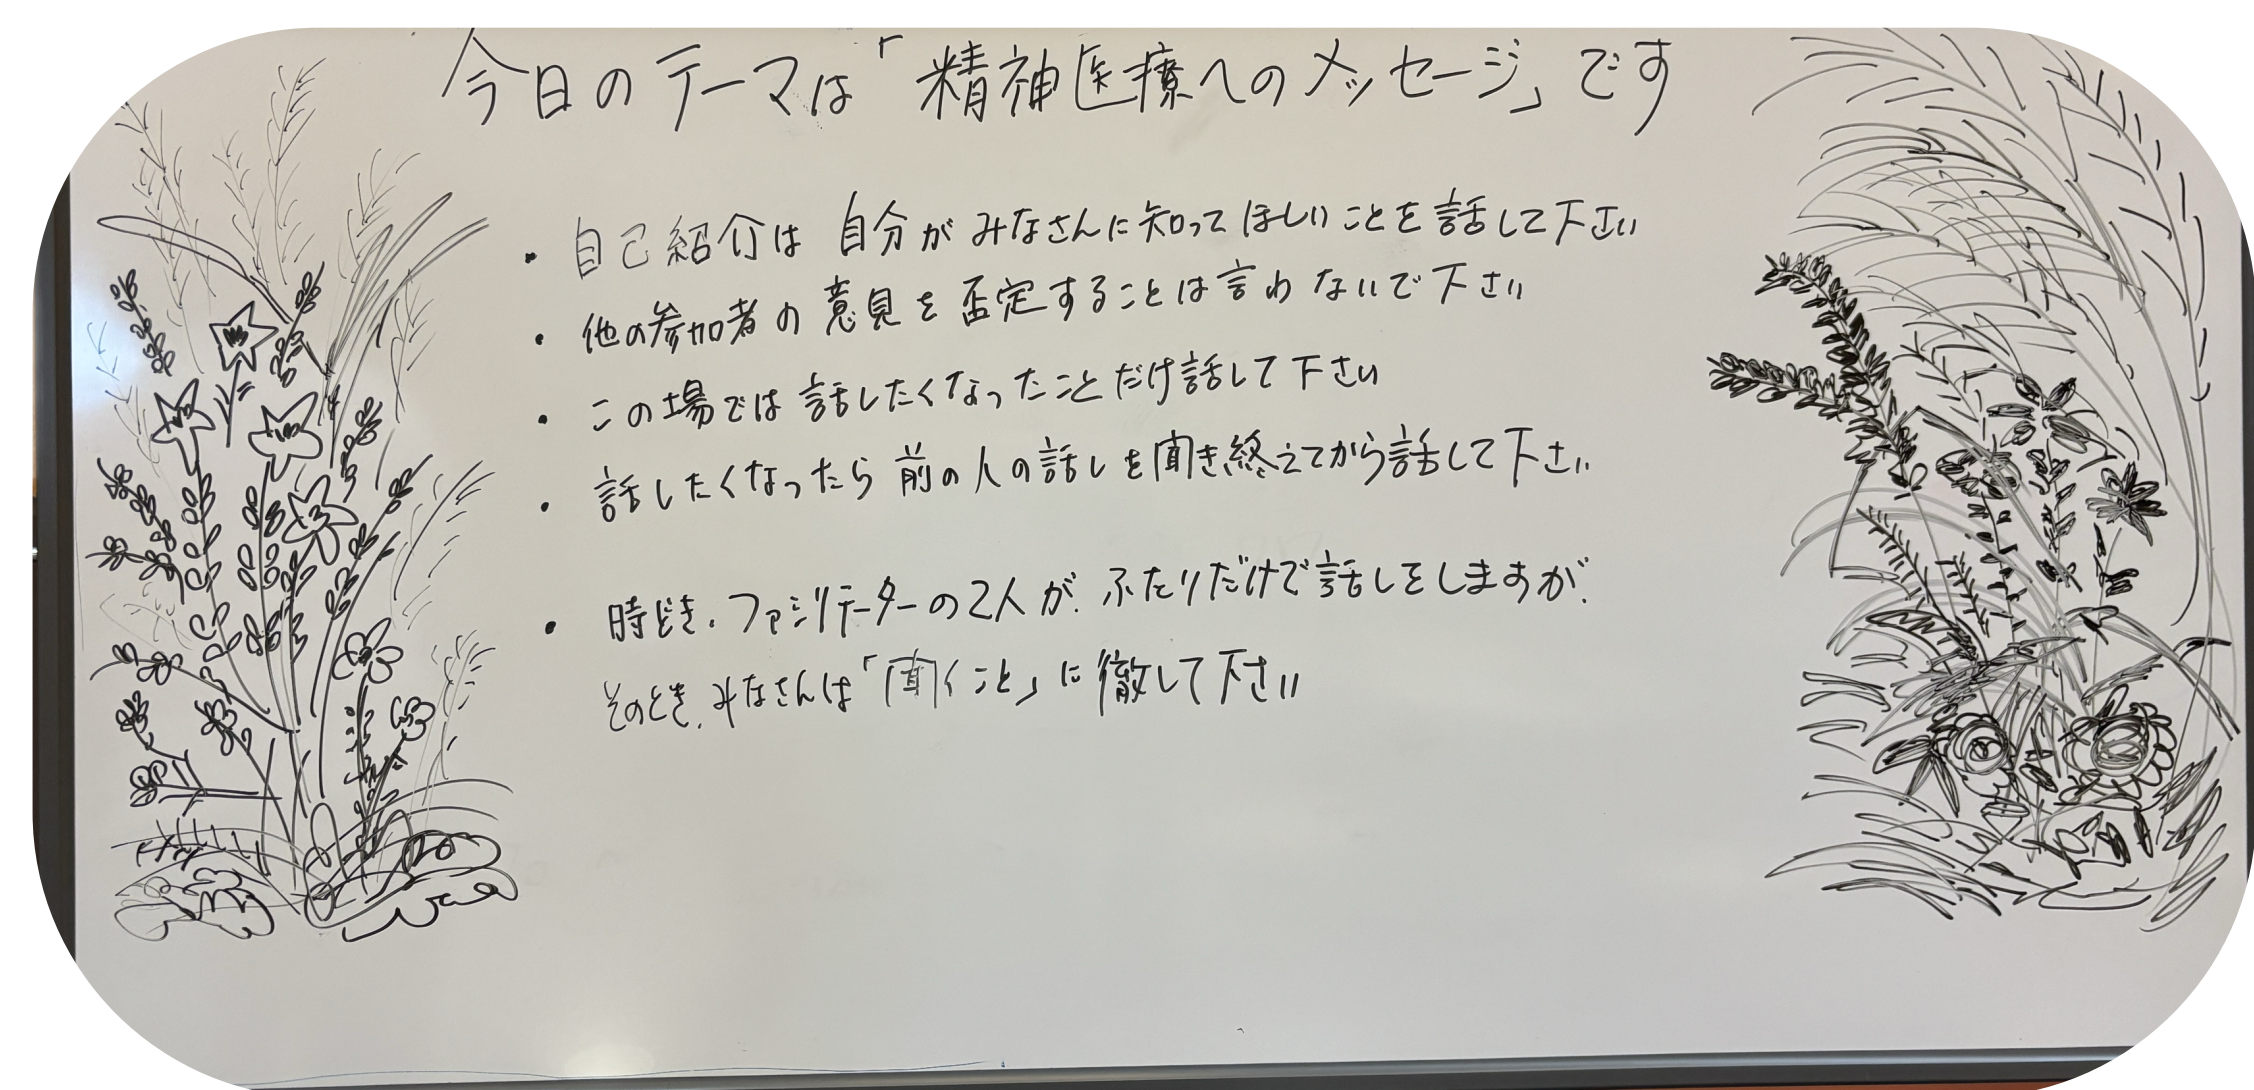 今日のテーマは「精神医療へのメッセージ」です
・自己紹介は自分がみなさんに知ってほしいことを話して下さい
・他の参加者の意見を否定することは言わないで下さい
・この場では話したくなったことだけ話して下さい
・話したくなったら前の人の話しを聞き終えてから話して下さい
・時どき、ファシリテーターの2人が、ふたりだけで話しをしますが、
そのとき、みなさんは「聞くこと」に徹して下さい